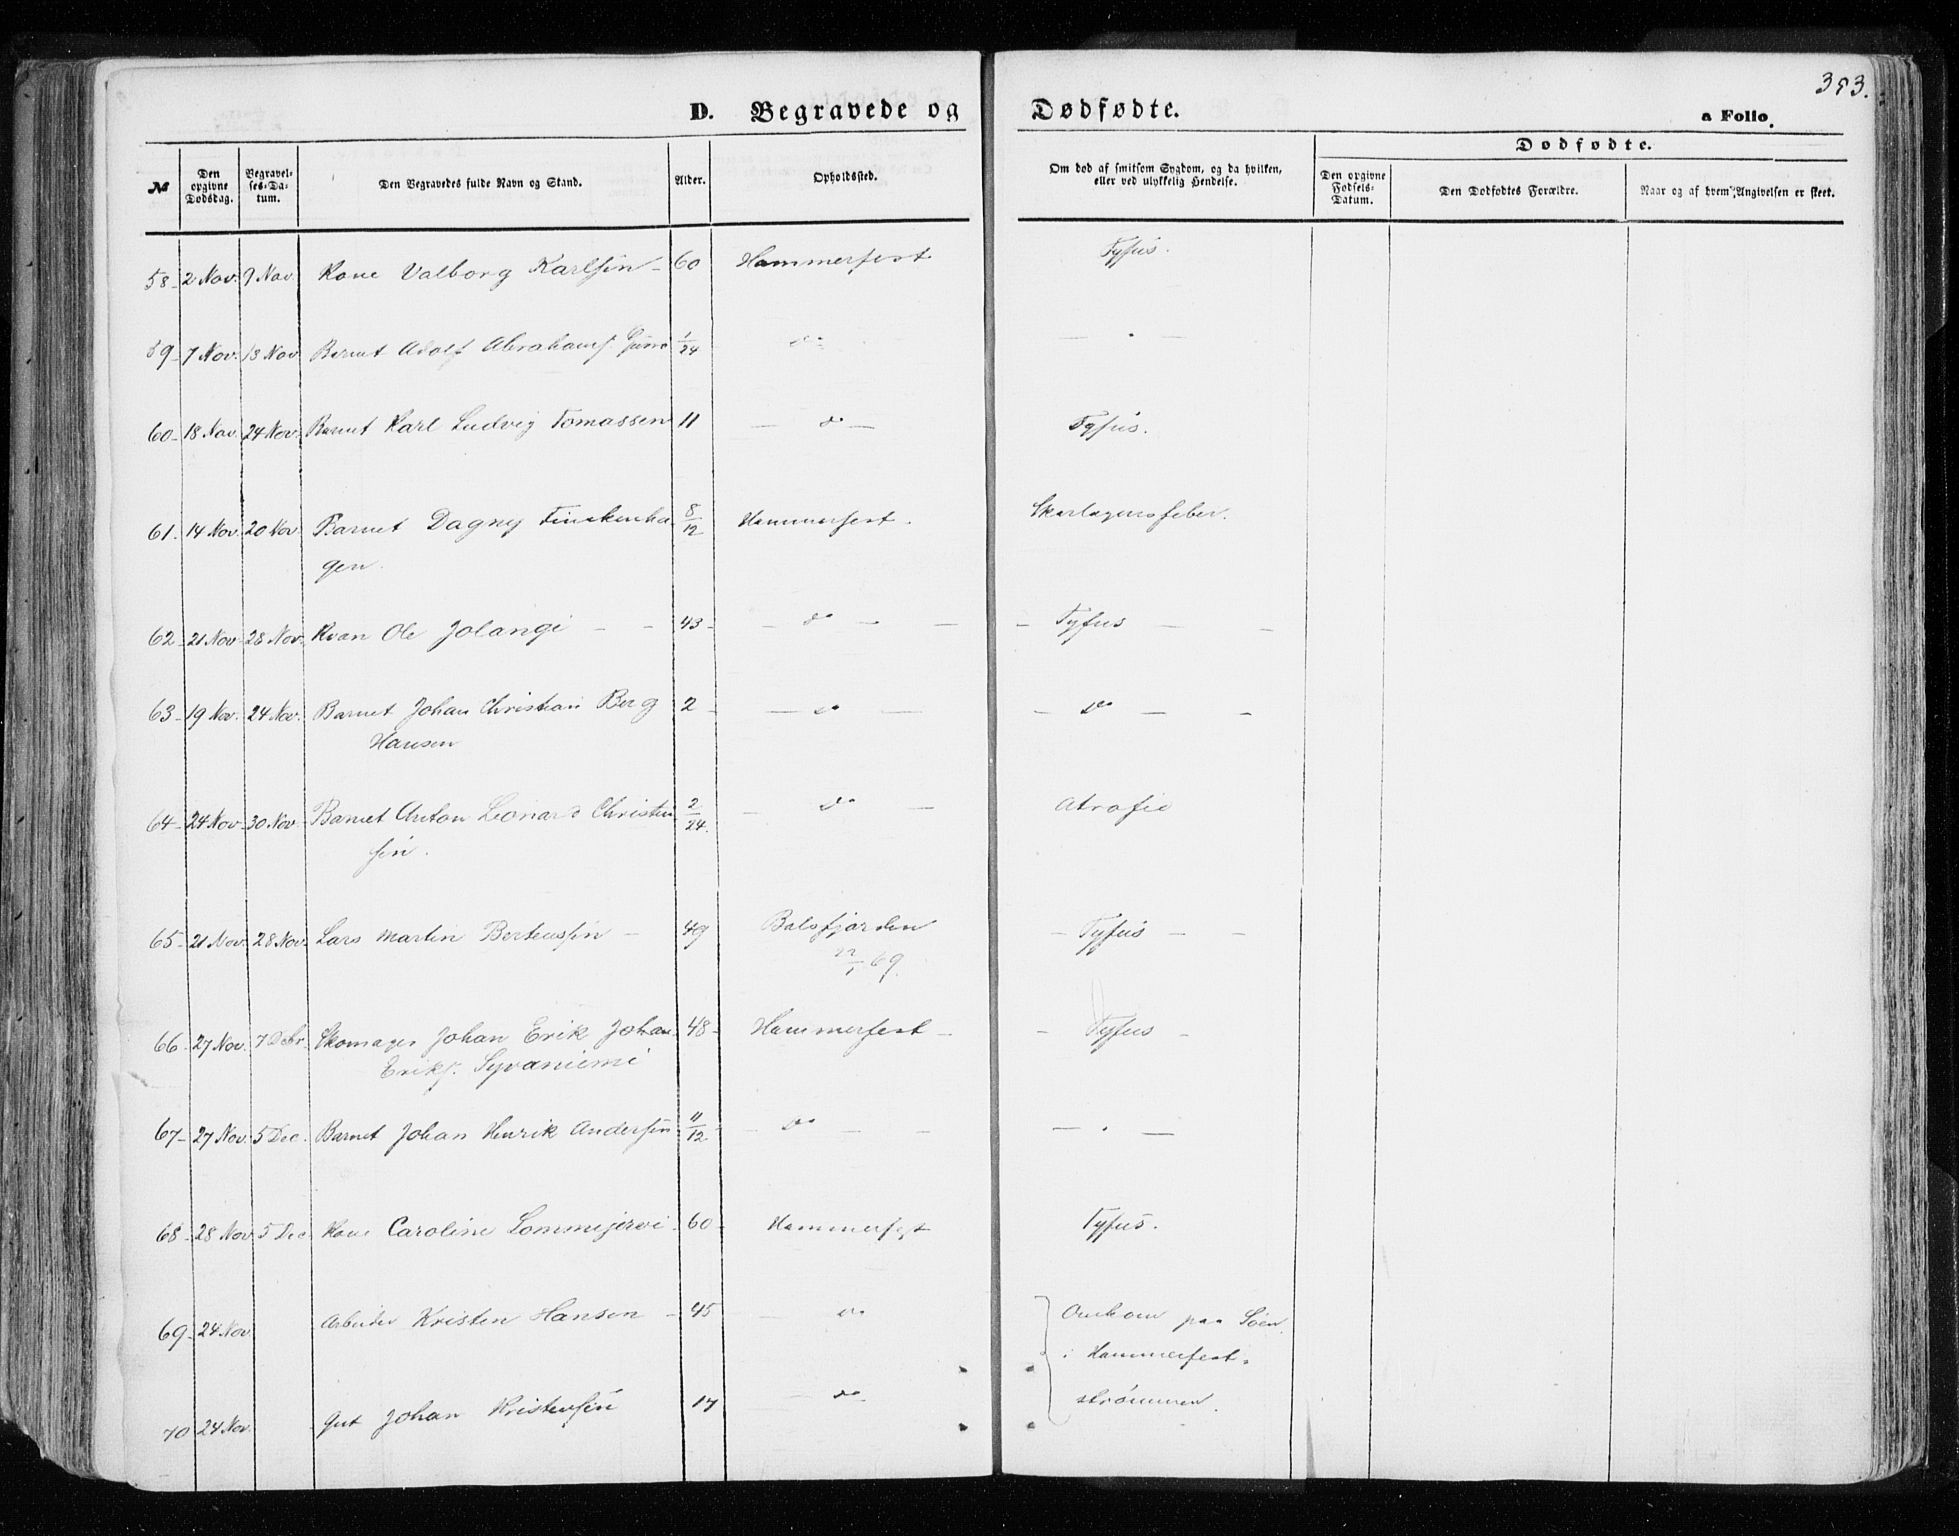 353.
D. Begravede og Dødfødte.
a Folio
№
Den opgivne Dødsdag.
Begravelses-Datum.
Den Begravedes fulde Navn og Stand.
Alder.
Opholdssted.
Om død af smitsom Sygdom, og da hvilken, eller ved ulykkelig Hendelse.
Dødfødte.
Den opgivne Fødsels-Datum.
Den Dødfødtes Forældre.
Naar og af hvem Angivelsen er skeet.
58 - 2 Nov. 9 Nov. Kone Valborg Karlsen - 60 Hammerfest Tyfus.
59 - 7 Nov. 13 Nov. Barnet Adolf Abrahams. 1/24 do - " -
60 - 18 Nov. 24 Nov. Barnet Karl Ludvig Tomassen 11 - do - Tyfus.
61. 14 Nov. 20 Nov. Barnet Dagny Finckenha 8/12 Hammerfest. Skarlagensfeber.
gen.
62 - 21 Nov. 28 Nov. Kvæn Ole Jolangi - - 43 - - do - - - Tyfus - -
63 - 19 Nov. 24 Nov. Barnet Johan Christian Berg 2 - - do - - do - -
Hansen
64 - 24 Nov. 30 Nov. Barnet Anton Leonard Christen 2/24. - do - Atrofie
sen.
65 - 21 Nov. 28 Nov. Lars Martin Berteussen - 49 Balsfjorden - Tyfus - -
22/1 69.
66 - 27 Nov. 7 Debr. Skomager Johan Erik Johan 48 - Hammerfest - - Tyfus -
Eriks. Syvaniemi
67 - 27 Nov. 5 Dec. Barnet Johan Henrik Andersen 11/12 - do - - - " -
68 - 28 Nov. 5 Dec. Kone Caroline Lommijervi - 60 - Hammerfest Tyfus.
69 - 24 Nov. Arbeider Kristen Hansen - 45 - do Omkom paa Søen
i Hammerfest-
strømmen.
70 24 Nov. Gut Johan Kristensen 14 - do